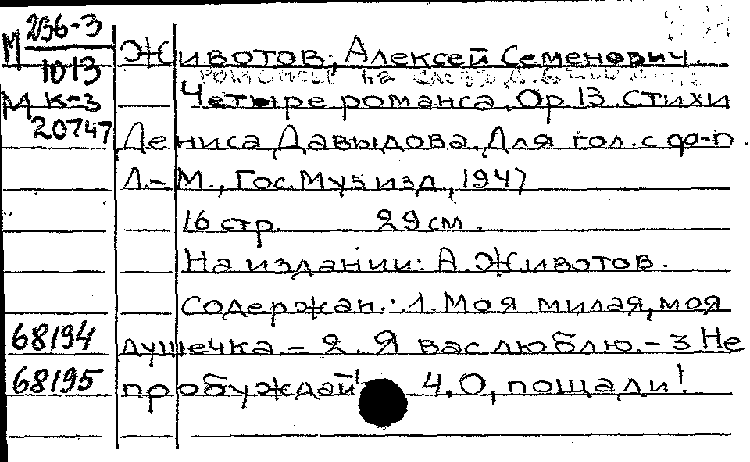 М 236-3
1013
М К-3
20747
Животов, Алексей Семенович
романсы на слова Д.
Четыре романса, Ор. 13. Стихи
Дениса Давыдова. Для гол. с ф-п.
Л.-М., Гос. Музизд, 1947
16 стр. 29 см.
На издании: А. Животов.
Содержан.: 1. Моя милая, моя
68194 душечка. - 2. Я вас люблю. - 3 Не
68195 пробуждай! 4. О, пощади!